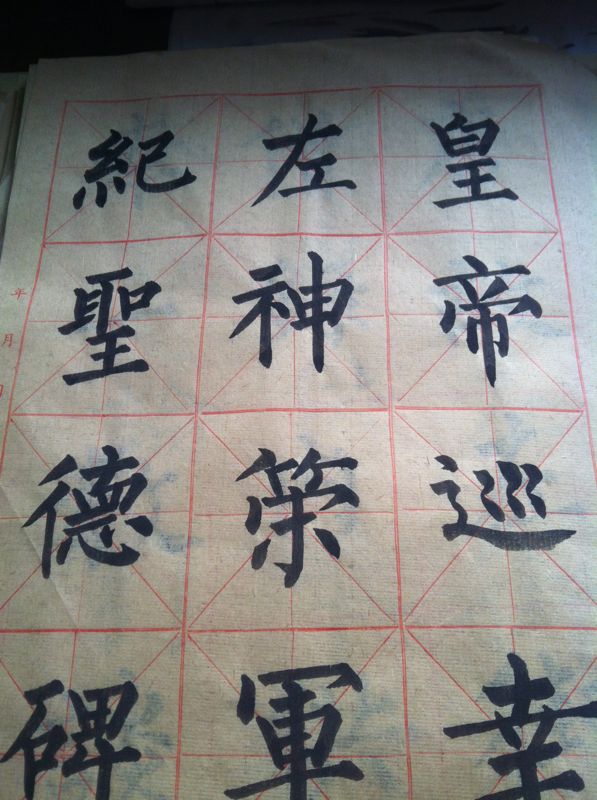 皇帝巡幸
左神策軍
紀聖德碑
年月日